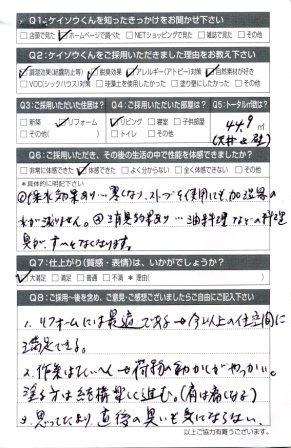 Q1:ケイソウくんを知ったきっかけをお聞かせ下さい
□お店で見た ☑ホームページで調べた □NETショッピングで見た □雑誌で見た □その他
Q2:ケイソウくんをご採用いただきました理由をお教え下さい
☑調湿効果(結露防止等) ☑脱臭効果 ☑アレルギー(アトピー)対策 ☑自然素材が好き
□VOC(シックハウス)対策 □珪藻土を使用したかった □塗り壁にしたかった □その他
Q3:ご採用いただいた住居は? Q4:ご採用いただいた部屋は? Q5:トータル㎡数は?
□新築 ☑リフォーム ☑リビング □寝室 □子供部屋 44.9 ㎡
□その他( ) □トイレ □その他 (天井と壁)
Q6:ご採用いただき、その後の生活の中で性能を体感できましたか?
□非常に体感できた ☑体感できた □よく分からない □全く体感できない □その他
*具体的に明記下さい
Q7:仕上がり(質感・表情)は、いかがでしょうか?
☑大満足 □満足 □普通 □不満 *理由( )
Q8:ご採用〜後を含め、ご意見・ご感想ございましたらご自由にご記入下さい
1、リフォームには最適である→今以上の住空間に
満足できる。
2、作業はたいへん→荷物の動かしがやっかい。
塗る方は結構楽しく進む。(肩は痛くなる)
3、思ってたより、直後の臭いも気にならない。
以上ご協力有難うございます。